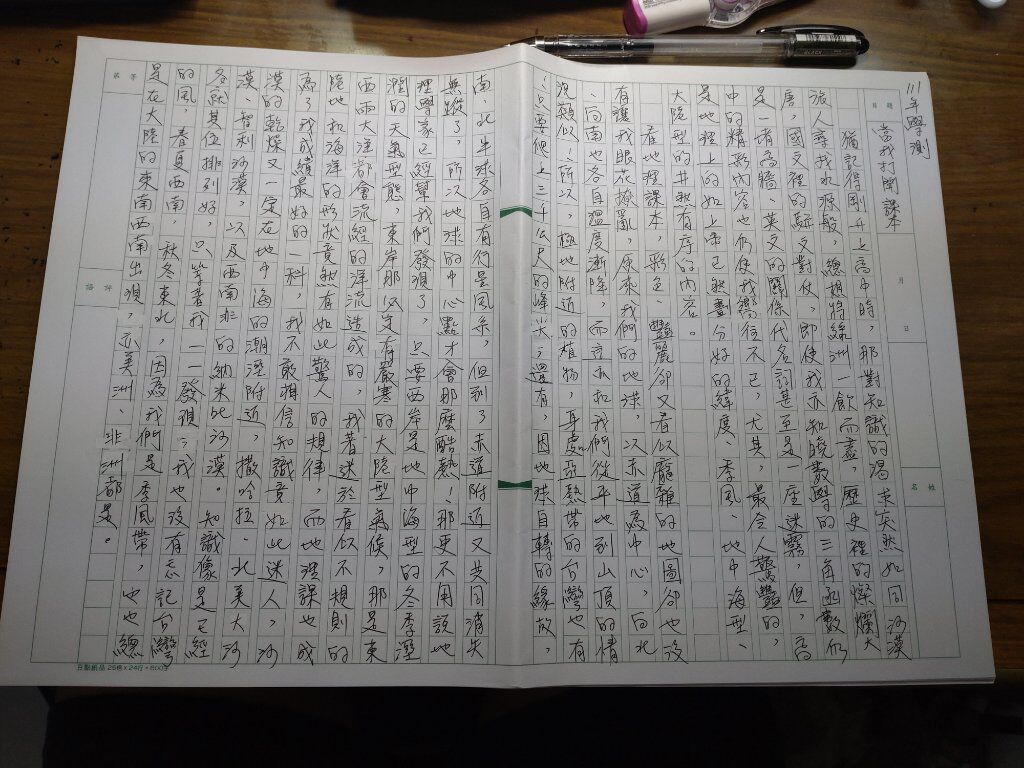 111年學測
題目
當我打開課本
月
日
姓名
猶記得剛升上高中時，那對知識的渴求突然如同沙漠
旅人尋找水源般，總想將綠洲一飲而盡，歷史裡的燦爛大
唐，國文裡的駢文對仗，即使我亦知曉數學的三角函數仍
是一堵高牆、英文的關係代名詞甚至是一座迷霧，但，高
中的精彩內容也仍使我嚮往不已，尤其，最令人驚豔的，
是地理上的如上帝已規劃分好的緯度、季風、地中海型、
大陸型的井然有序的內容。
看地理課本，彩色、豔麗卻又看似龐雜的地圖卻也沒
有讓我眼花撩亂，原來我們的地球，以赤道為中心，向北
、向南也各自溫度漸降，而這亦和我們從平地到山頂的情
況類似！所以，極地附近的植物，身處亞熱帶的台灣也有
！只要爬上三千公尺的峰尖；還有，因地球自轉的緣故，
南、北半球各自有行星風系，但到了赤道附近又共同消失
無蹤了，所以地球的中心點才會那麼酷熱！那更不用說地
理學家已經幫我們發現了，只要西岸是地中海型的冬季溼
潤的天氣型態，東岸那必定有嚴寒的大陸型氣候，那是東
西兩大洋都會流經的洋流造成的，我著迷於看似不規則的
陸地和海洋的形狀竟然有如此驚人的規律，而地理課也成
為了我成績最好的一科，我不敢相信知識竟如此迷人，沙
漠的乾燥又一定在地中海的潮溼附近，撒哈拉、北美大沙
漠、智利沙漠，以及西南非的納米比沙漠。知識像是已經
各就其位排列好，只等著我一一發現；我也沒有忘記台灣
的風，春夏西南，秋冬東北，因為我們是季風帶，也總
是在大陸的東南西南出現，亦美洲、非洲都是。
等第
評語
日點紙品 25格×24行＝600字